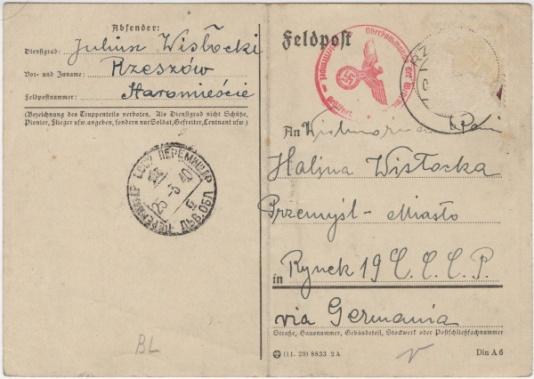 Absender:
Dienstgrad: Juliusz Wisłocki
Vor- und Zuname: Rzeszów
Feldpostnummer: Staromieście
(Bezeichnung des Truppenteils verboten. Als Dienstgrad nicht Schütze,
Pionier, Flieger usw. angeben, sondern nur Soldat, Gefreiter, Leutnant usw.)
ПЕРЕМИШЛЬ
25-5 40
ЛЬВ.ОБЛ.
BL
Feldpost
Oberkommando der
geöffnet
RZ
An Pani
Halina Wisłocka
Przemyśl - Miasto
in Rynek 19 C.C.C.P.
via Germania
Straße, Hausnummer, Gebäudeteil, Stockwerk oder Postschließfachnummer
(11. 39) 8833 2A Din A 6